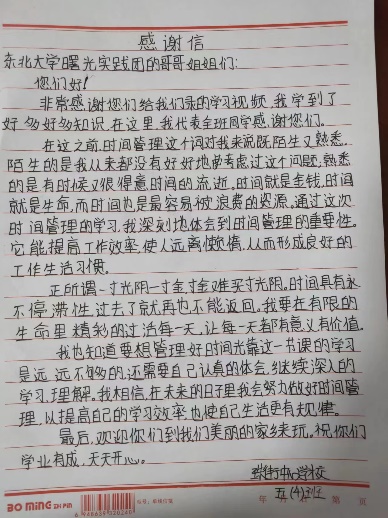 感谢信
东北大学曙光实践团的哥哥姐姐们:
您们好!
非常感谢您们给我们录的学习视频,我学到了
好多好多知识,在这里,我代表全班同学感谢您们。
在这之前,时间管理这个词对我来说既陌生又熟悉。
陌生的是我从来都没有好好地思考虑过这个问题,熟悉
的是有时候又很得意时间的流逝,时间就是金钱,时间
就是生命,而时间也是最容易被浪费的资源,通过这次
时间管理的学习,我深刻地体会到时间管理的重要性。
它能提高工作效率,使人远离懒惰,从而形成良好的
工作生活习惯。
正所谓一寸光阴一寸金,寸金难买寸光阴,时间具有永
不停滞性,过去了就再也不能返回。我要在有限的
生命里精彩的过活每一天,让每一天都有意义有价值。
我也知道要想管理好时间光靠这一节课的学习
是远远不够的,还需要自己认真的体会,继续深入的
学习,理解。我相信,在未来的日子里我会努力做好时间管
理,以提高自己的学习效率也使自己生活更有规律。
最后,欢迎你们到我们美丽的家乡来玩。祝你们
学业有成,天天开心。
街中心学校
五(4)班
BO MING
年 月 日 第 页